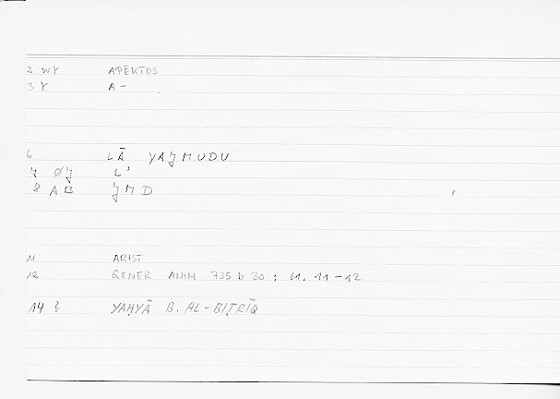 2 WY APĒKTOS
3 Y A-
6 LĀ YAJMUDU
7 ØJ L'
8 AB JMD
11 ARIST
12 GENER ANIM 735 b 30 : 61, 11-12
14 YAḤYĀ B. AL-BIṬRĪQ